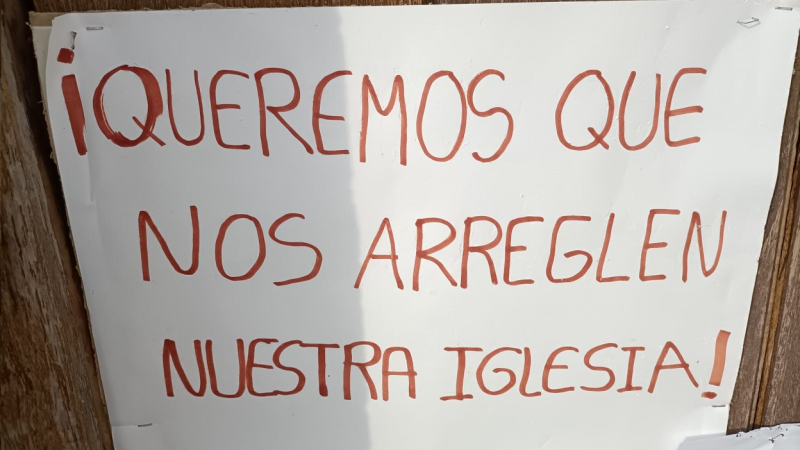 ¡QUEREMOS QUE
NOS ARREGLEN
NUESTRA IGLESIA!